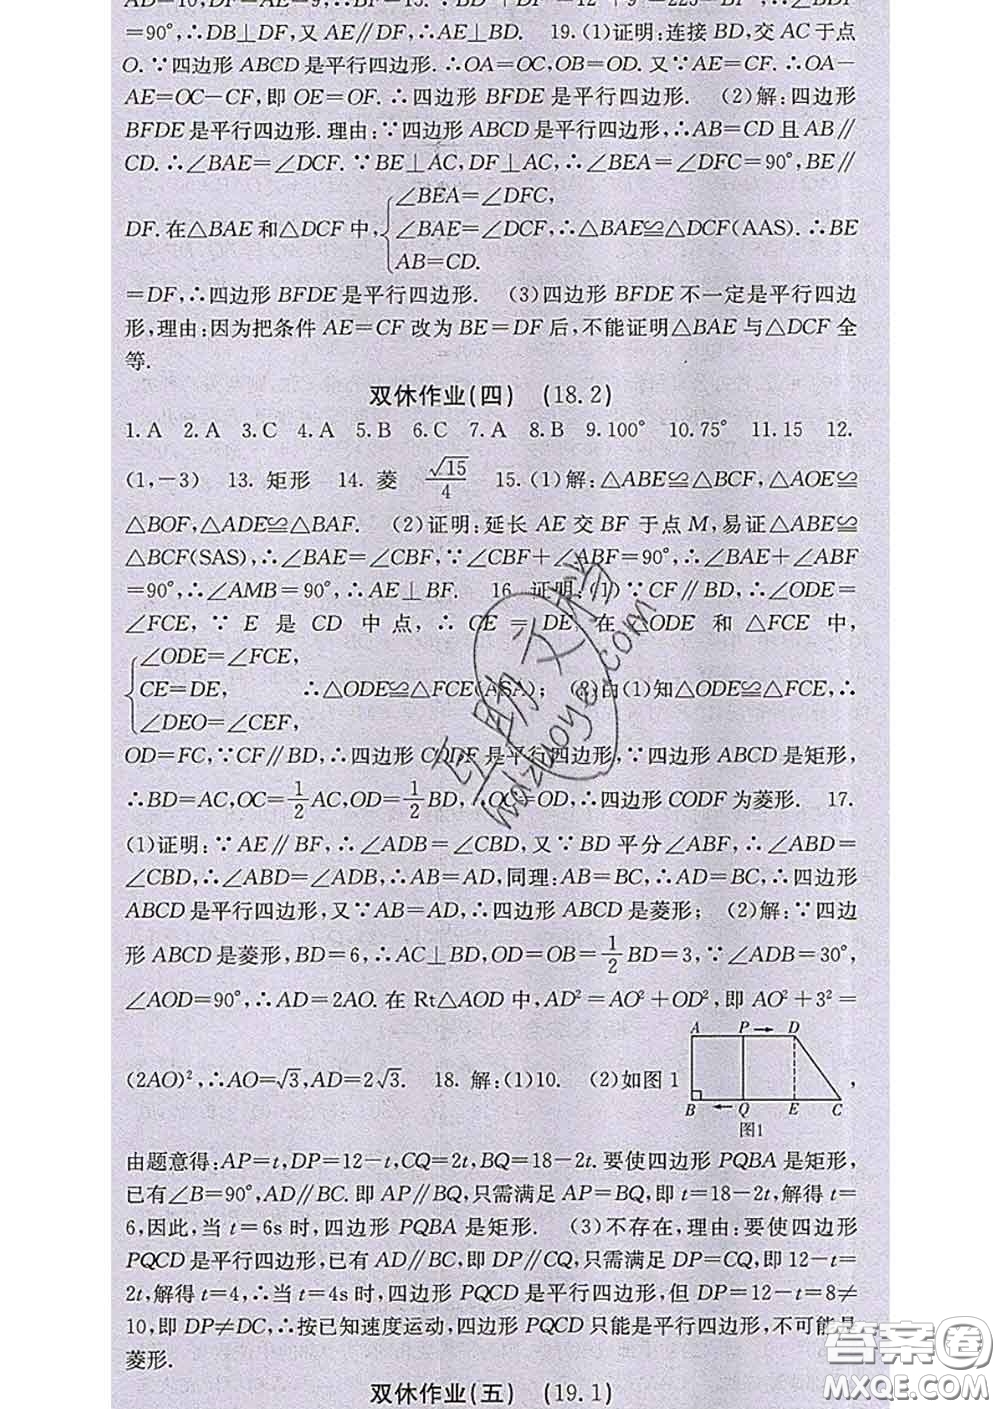 AD=10,DF=AE=9,∴BF=15.∵BD²+DF²=12²+9²=225=BF²,∴∠BDF
=90°,∴DB⊥DF,又AE∥DF,∴AE⊥BD. 19.(1)证明:连接BD,交AC于点
O.∵四边形ABCD是平行四边形.∴OA=OC,OB=OD.又∵AE=CF.∴OA-
AE=OC-CF,即OE=OF.∴四边形BFDE是平行四边形. (2)解:四边形
BFDE是平行四边形.理由:∵四边形ABCD是平行四边形,∴AB=CD且AB∥
CD.∴∠BAE=∠DCF.∵BE⊥AC,DF⊥AC,∴∠BEA=∠DFC=90°,BE∥
DF.在△BAE和△DCF中,{∠BEA=∠DFC,
∠BAE=∠DCF,∴△BAE≌△DCF(AAS).∴BE
AB=CD.
=DF,∴四边形BFDE是平行四边形. (3)四边形BFDE不一定是平行四边
形,理由:因为把条件AE=CF改为BE=DF后,不能证明△BAE与△DCF全
等.
双休作业(四) (18.2)
1.A 2.A 3.C 4.A 5.B 6.C 7.A 8.B 9.100° 10.75° 11.15 12.
(1,-3) 13.矩形 14.菱 √15/4 15.(1)解:△ABE≌△BCF,△AOE≌
△BOF,△ADE≌△BAF. (2)证明:延长AE交BF于点M,易证△ABE≌
△BCF(SAS),∴∠BAE=∠CBF,∵∠CBF+∠ABF=90°,∴∠BAE+∠ABF
=90°,∴∠AMB=90°,∴AE⊥BF. 16.证明:(1)∵CF∥BD,∴∠ODE=
∠FCE,∵E是CD中点,∴CE=DE,在△ODE和△FCE中,
{∠ODE=∠FCE,
CE=DE, ∴△ODE≌△FCE(ASA); (2)由(1)知△ODE≌△FCE,∴
∠DEO=∠CEF,
OD=FC,∵CF∥BD,∴四边形CODF是平行四边形,∵四边形ABCD是矩形,
∴BD=AC,OC=1/2AC,OD=1/2BD,∴OC=OD,∴四边形CODF为菱形. 17.
(1)证明:∵AE∥BF,∴∠ADB=∠CBD,又∵BD平分∠ABF,∴∠ABD=
∠CBD,∴∠ABD=∠ADB,∴AB=AD,同理:AB=BC,∴AD=BC,∴四边形
ABCD是平行四边形,又∵AB=AD,∴四边形ABCD是菱形; (2)解:∵四边
形ABCD是菱形,BD=6,∴AC⊥BD,OD=OB=1/2BD=3,∵∠ADB=30°,
∠AOD=90°,∴AD=2AO.在Rt△AOD中,AD²=AO²+OD²,即AO²+3²=
(2AO)²,∴AO=√3,AD=2√3. 18.解:(1)10. (2)如图1
A P D
B Q E C
图1
,
由题意得:AP=t,DP=12-t,CQ=2t,BQ=18-2t.要使四边形PQBA是矩形,
已有∠B=90°,AD∥BC.即AP∥BQ,只需满足AP=BQ,即t=18-2t,解得t=
6,因此,当t=6s时,四边形PQBA是矩形. (3)不存在,理由:要使四边形
PQCD是平行四边形,已有AD∥BC,即DP∥CQ,只需满足DP=CQ,即12-t=
2t,解得t=4,∴当t=4s时,四边形PQCD是平行四边形,但DP=12-t=8≠
10,即DP≠DC,∴按已知速度运动,四边形PQCD只能是平行四边形,不可能是
菱形.
双休作业(五) (19.1)
互助文学
hdzuoye.com
答案圈
MXQE.COM